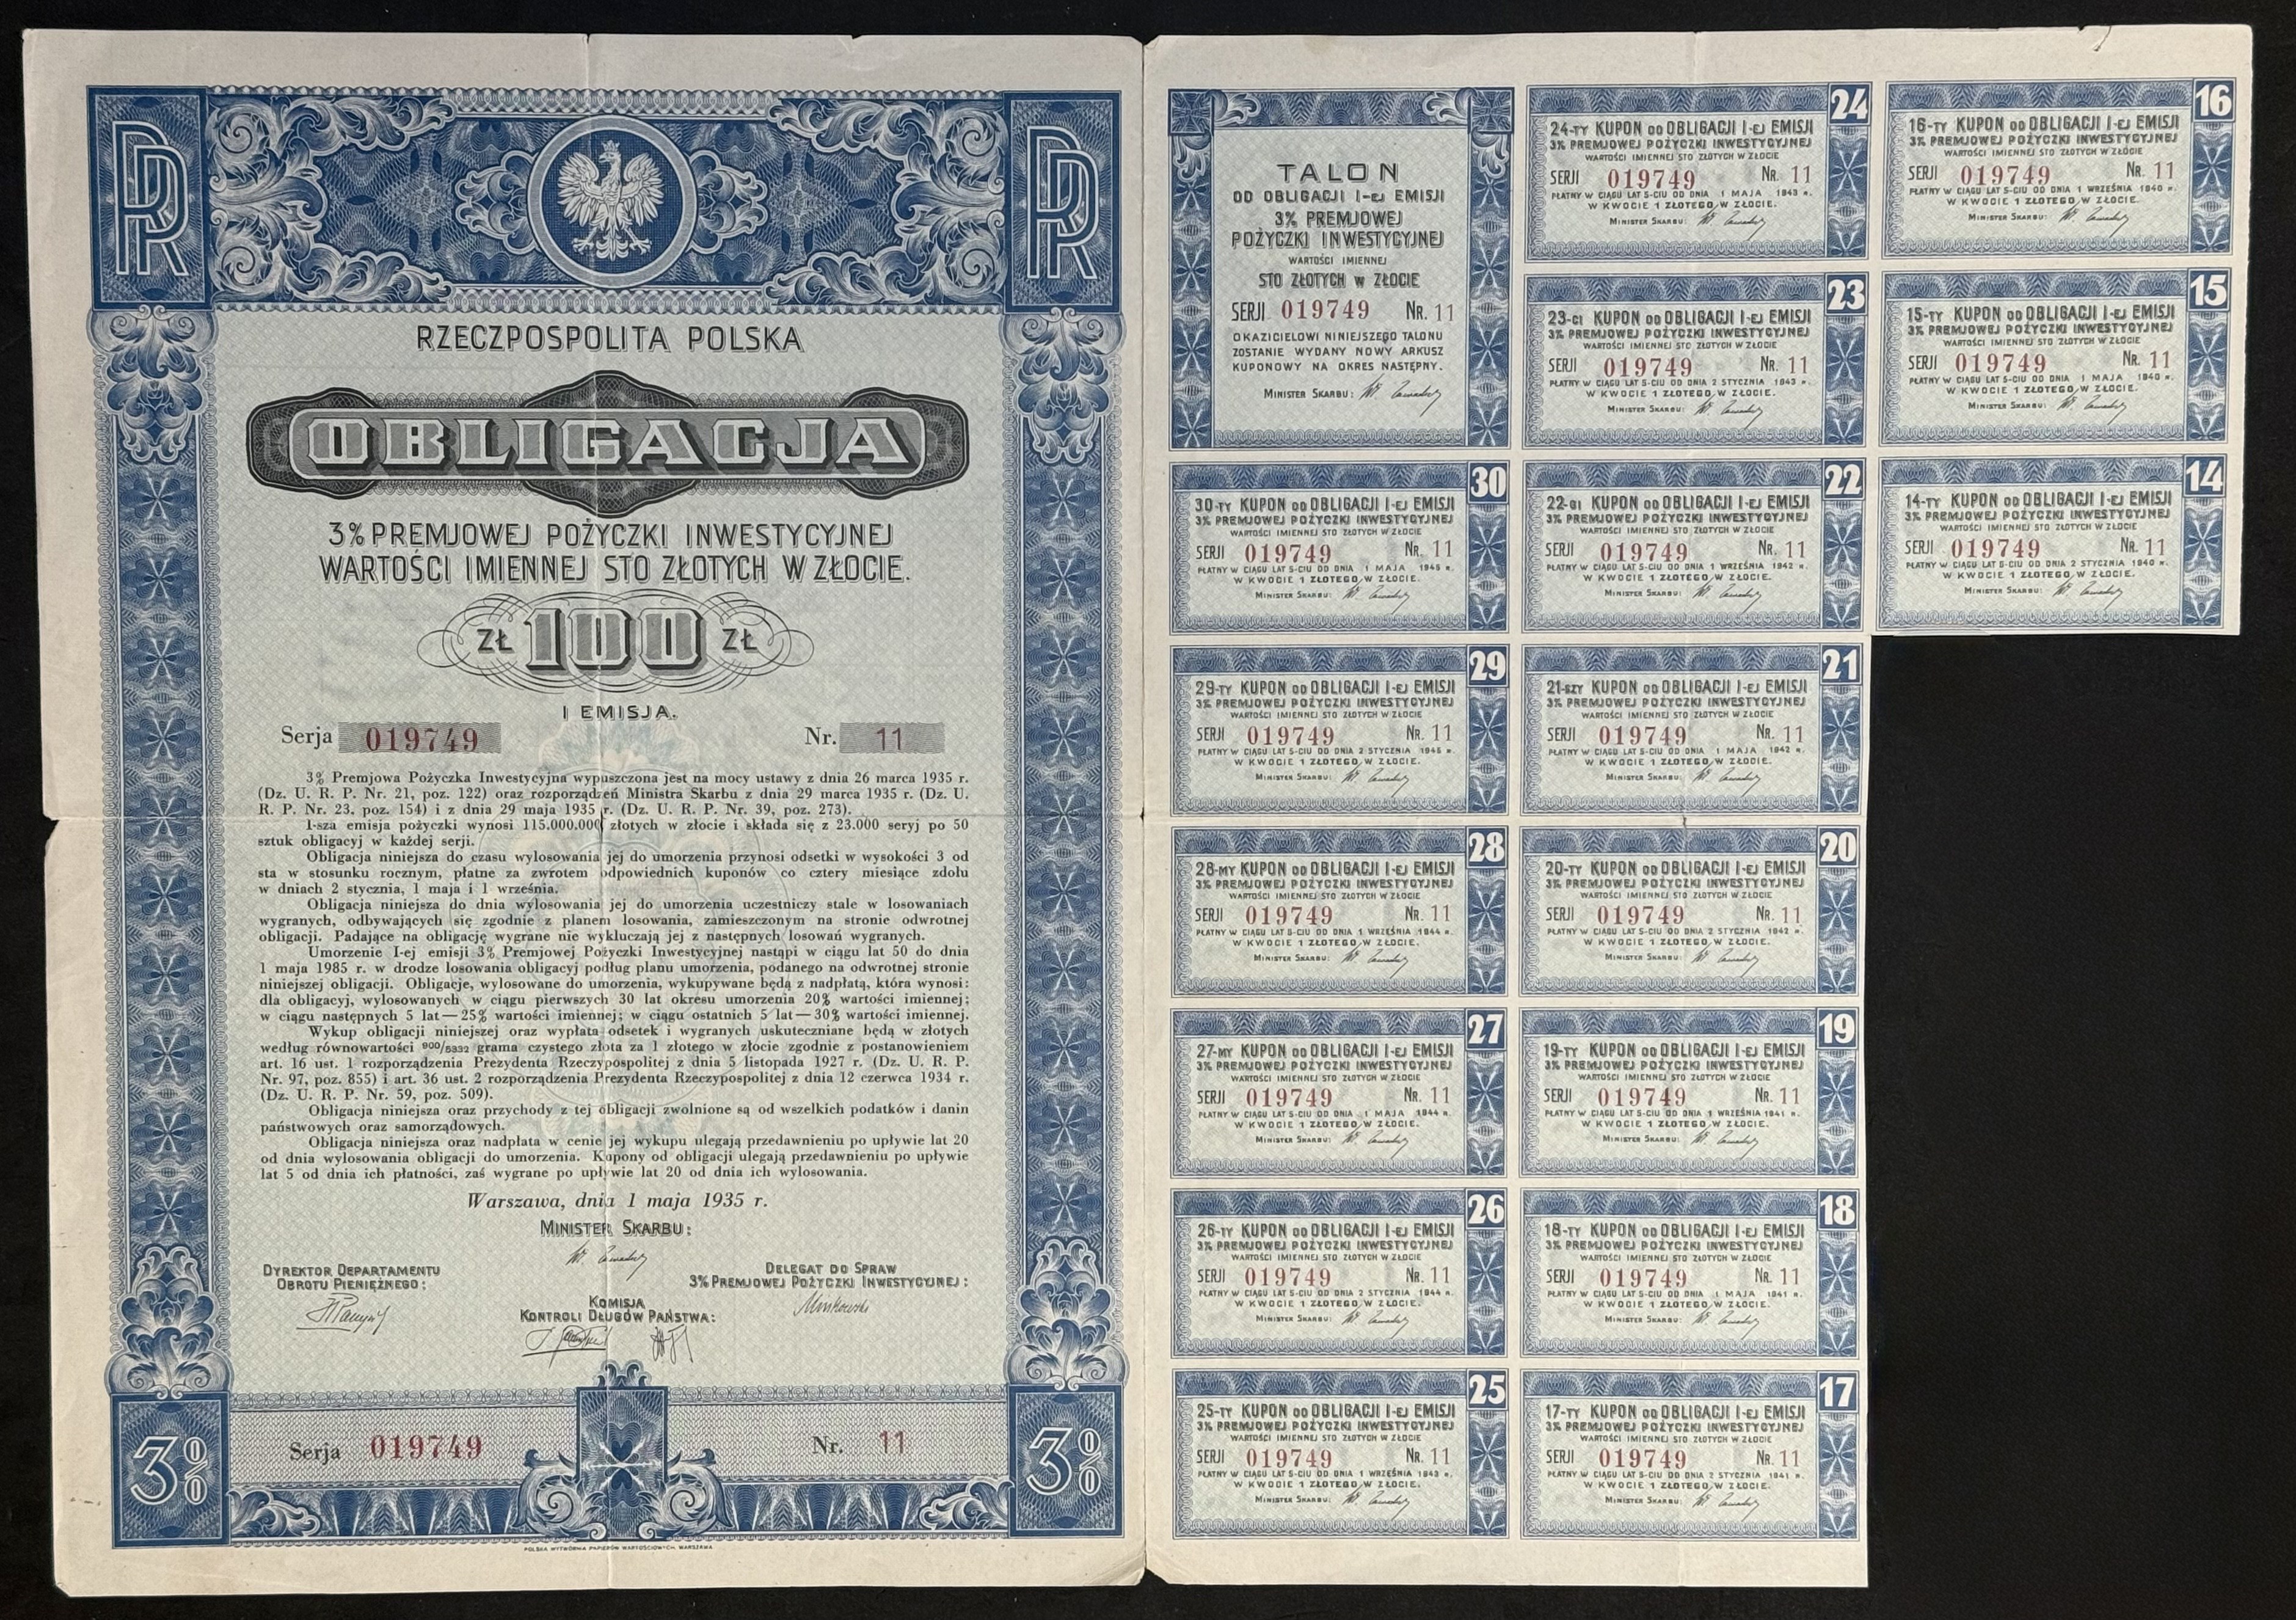 RP
RP
RZECZPOSPOLITA POLSKA
OBLIGACJA
3% PREMJOWEJ POŻYCZKI INWESTYCYJNEJ
WARTOŚCI IMIENNEJ STO ZŁOTYCH W ZŁOCIE.
ZŁ 100 ZŁ
I EMISJA.
Serja 019749 Nr. 11
3% Premjowa Pożyczka Inwestycyjna wypuszczona jest na mocy ustawy z dnia 26 marca 1935 r.
(Dz. U. R. P. Nr. 21, poz. 122) oraz rozporządzeń Ministra Skarbu z dnia 29 marca 1935 r. (Dz. U.
R. P. Nr. 23, poz. 154) i z dnia 29 maja 1935 r. (Dz. U. R. P. Nr. 39, poz. 273).
I-sza emisja pożyczki wynosi 115.000.000 złotych w złocie i składa się z 23.000 seryj po 50
sztuk obligacyj w każdej serji.
Obligacja niniejsza do czasu wylosowania jej do umorzenia przynosi odsetki w wysokości 3 od
sta w stosunku rocznym, płatne za zwrotem odpowiednich kuponów co cztery miesiące zdołu
w dniach 2 stycznia, 1 maja i 1 września.
Obligacja niniejsza do dnia wylosowania jej do umorzenia uczestniczy stale w losowaniach
wygranych, odbywających się zgodnie z planem losowania, zamieszczonym na stronie odwrotnej
obligacji. Padające na obligację wygrane nie wykluczają jej z następnych losowań wygranych.
Umorzenie I-ej emisji 3% Premjowej Pożyczki Inwestycyjnej nastąpi w ciągu lat 50 do dnia
1 maja 1985 r. w drodze losowania obligacyj podług planu umorzenia, podanego na odwrotnej stronie
niniejszej obligacji. Obligacje, wylosowane do umorzenia, wykupywane będą z nadpłatą, która wynosi:
dla obligacyj, wylosowanych w ciągu pierwszych 30 lat okresu umorzenia 20% wartości imiennej;
w ciągu następnych 5 lat — 25% wartości imiennej; w ciągu ostatnich 5 lat — 30% wartości imiennej.
Wykup obligacji niniejszej oraz wypłata odsetek i wygranych uskuteczniane będą w złotych
według równowartości 900/5332 grama czystego złota za 1 złotego w złocie zgodnie z postanowieniem
art. 16 ust. 1 rozporządzenia Prezydenta Rzeczypospolitej z dnia 5 listopada 1927 r. (Dz. U. R. P.
Nr. 97, poz. 855) i art. 36 ust. 2 rozporządzenia Prezydenta Rzeczypospolitej z dnia 12 czerwca 1934 r.
(Dz. U. R. P. Nr. 59, poz. 509).
Obligacja niniejsza oraz przychody z tej obligacji zwolnione są od wszelkich podatków i danin
państwowych oraz samorządowych.
Obligacja niniejsza oraz nadpłata w cenie jej wykupu ulegają przedawnieniu po upływie lat 20
od dnia wylosowania obligacji do umorzenia. Kupony od obligacji ulegają przedawnieniu po upływie
lat 5 od dnia ich płatności, zaś wygrane po upływie lat 20 od dnia ich wylosowania.
Warszawa, dnia 1 maja 1935 r.
MINISTER SKARBU:
DYREKTOR DEPARTAMENTU
OBROTU PIENIĘŻNEGO:
DELEGAT DO SPRAW
3% PREMJOWEJ POŻYCZKI INWESTYCYJNEJ:
KOMISJA
KONTROLI DŁUGÓW PAŃSTWA:
3% Serja 019749 Nr. 11 3%
POLSKA WYTWÓRNIA PAPIERÓW WARTOŚCIOWYCH, WARSZAWA
TALON
OD OBLIGACJI I-EJ EMISJI
3% PREMJOWEJ
POŻYCZKI INWESTYCYJNEJ
WARTOŚCI IMIENNEJ
STO ZŁOTYCH W ZŁOCIE
SERJI 019749 NR. 11
OKAZICIELOWI NINIEJSZEGO TALONU
ZOSTANIE WYDANY NOWY ARKUSZ
KUPONOWY NA OKRES NASTĘPNY.
MINISTER SKARBU:
30
30-TY KUPON OD OBLIGACJI I-EJ EMISJI
3% PREMJOWEJ POŻYCZKI INWESTYCYJNEJ
WARTOŚCI IMIENNEJ STO ZŁOTYCH W ZŁOCIE
SERJI 019749 NR. 11
PŁATNY W CIĄGU LAT 5-CIU OD DNIA 1 MAJA 1945 R.
W KWOCIE 1 ZŁOTEGO W ZŁOCIE.
MINISTER SKARBU:
29
29-TY KUPON OD OBLIGACJI I-EJ EMISJI
3% PREMJOWEJ POŻYCZKI INWESTYCYJNEJ
WARTOŚCI IMIENNEJ STO ZŁOTYCH W ZŁOCIE
SERJI 019749 NR. 11
PŁATNY W CIĄGU LAT 5-CIU OD DNIA 2 STYCZNIA 1945 R.
W KWOCIE 1 ZŁOTEGO W ZŁOCIE.
MINISTER SKARBU:
28
28-MY KUPON OD OBLIGACJI I-EJ EMISJI
3% PREMJOWEJ POŻYCZKI INWESTYCYJNEJ
WARTOŚCI IMIENNEJ STO ZŁOTYCH W ZŁOCIE
SERJI 019749 NR. 11
PŁATNY W CIĄGU LAT 5-CIU OD DNIA 1 WRZEŚNIA 1944 R.
W KWOCIE 1 ZŁOTEGO W ZŁOCIE.
MINISTER SKARBU:
27
27-MY KUPON OD OBLIGACJI I-EJ EMISJI
3% PREMJOWEJ POŻYCZKI INWESTYCYJNEJ
WARTOŚCI IMIENNEJ STO ZŁOTYCH W ZŁOCIE
SERJI 019749 NR. 11
PŁATNY W CIĄGU LAT 5-CIU OD DNIA 1 MAJA 1944 R.
W KWOCIE 1 ZŁOTEGO W ZŁOCIE.
MINISTER SKARBU:
26
26-TY KUPON OD OBLIGACJI I-EJ EMISJI
3% PREMJOWEJ POŻYCZKI INWESTYCYJNEJ
WARTOŚCI IMIENNEJ STO ZŁOTYCH W ZŁOCIE
SERJI 019749 NR. 11
PŁATNY W CIĄGU LAT 5-CIU OD DNIA 2 STYCZNIA 1944 R.
W KWOCIE 1 ZŁOTEGO W ZŁOCIE.
MINISTER SKARBU:
25
25-TY KUPON OD OBLIGACJI I-EJ EMISJI
3% PREMJOWEJ POŻYCZKI INWESTYCYJNEJ
WARTOŚCI IMIENNEJ STO ZŁOTYCH W ZŁOCIE
SERJI 019749 NR. 11
PŁATNY W CIĄGU LAT 5-CIU OD DNIA 1 WRZEŚNIA 1943 R.
W KWOCIE 1 ZŁOTEGO W ZŁOCIE.
MINISTER SKARBU:
24
24-TY KUPON OD OBLIGACJI I-EJ EMISJI
3% PREMJOWEJ POŻYCZKI INWESTYCYJNEJ
WARTOŚCI IMIENNEJ STO ZŁOTYCH W ZŁOCIE
SERJI 019749 NR. 11
PŁATNY W CIĄGU LAT 5-CIU OD DNIA 1 MAJA 1943 R.
W KWOCIE 1 ZŁOTEGO W ZŁOCIE.
MINISTER SKARBU:
23
23-CI KUPON OD OBLIGACJI I-EJ EMISJI
3% PREMJOWEJ POŻYCZKI INWESTYCYJNEJ
WARTOŚCI IMIENNEJ STO ZŁOTYCH W ZŁOCIE
SERJI 019749 NR. 11
PŁATNY W CIĄGU LAT 5-CIU OD DNIA 2 STYCZNIA 1943 R.
W KWOCIE 1 ZŁOTEGO W ZŁOCIE.
MINISTER SKARBU:
22
22-GI KUPON OD OBLIGACJI I-EJ EMISJI
3% PREMJOWEJ POŻYCZKI INWESTYCYJNEJ
WARTOŚCI IMIENNEJ STO ZŁOTYCH W ZŁOCIE
SERJI 019749 NR. 11
PŁATNY W CIĄGU LAT 5-CIU OD DNIA 1 WRZEŚNIA 1942 R.
W KWOCIE 1 ZŁOTEGO W ZŁOCIE.
MINISTER SKARBU:
21
21-SZY KUPON OD OBLIGACJI I-EJ EMISJI
3% PREMJOWEJ POŻYCZKI INWESTYCYJNEJ
WARTOŚCI IMIENNEJ STO ZŁOTYCH W ZŁOCIE
SERJI 019749 NR. 11
PŁATNY W CIĄGU LAT 5-CIU OD DNIA 1 MAJA 1942 R.
W KWOCIE 1 ZŁOTEGO W ZŁOCIE.
MINISTER SKARBU:
20
20-TY KUPON OD OBLIGACJI I-EJ EMISJI
3% PREMJOWEJ POŻYCZKI INWESTYCYJNEJ
WARTOŚCI IMIENNEJ STO ZŁOTYCH W ZŁOCIE
SERJI 019749 NR. 11
PŁATNY W CIĄGU LAT 5-CIU OD DNIA 2 STYCZNIA 1942 R.
W KWOCIE 1 ZŁOTEGO W ZŁOCIE.
MINISTER SKARBU:
19
19-TY KUPON OD OBLIGACJI I-EJ EMISJI
3% PREMJOWEJ POŻYCZKI INWESTYCYJNEJ
WARTOŚCI IMIENNEJ STO ZŁOTYCH W ZŁOCIE
SERJI 019749 NR. 11
PŁATNY W CIĄGU LAT 5-CIU OD DNIA 1 WRZEŚNIA 1941 R.
W KWOCIE 1 ZŁOTEGO W ZŁOCIE.
MINISTER SKARBU:
18
18-TY KUPON OD OBLIGACJI I-EJ EMISJI
3% PREMJOWEJ POŻYCZKI INWESTYCYJNEJ
WARTOŚCI IMIENNEJ STO ZŁOTYCH W ZŁOCIE
SERJI 019749 NR. 11
PŁATNY W CIĄGU LAT 5-CIU OD DNIA 1 MAJA 1941 R.
W KWOCIE 1 ZŁOTEGO W ZŁOCIE.
MINISTER SKARBU:
17
17-TY KUPON OD OBLIGACJI I-EJ EMISJI
3% PREMJOWEJ POŻYCZKI INWESTYCYJNEJ
WARTOŚCI IMIENNEJ STO ZŁOTYCH W ZŁOCIE
SERJI 019749 NR. 11
PŁATNY W CIĄGU LAT 5-CIU OD DNIA 2 STYCZNIA 1941 R.
W KWOCIE 1 ZŁOTEGO W ZŁOCIE.
MINISTER SKARBU:
16
16-TY KUPON OD OBLIGACJI I-EJ EMISJI
3% PREMJOWEJ POŻYCZKI INWESTYCYJNEJ
WARTOŚCI IMIENNEJ STO ZŁOTYCH W ZŁOCIE
SERJI 019749 NR. 11
PŁATNY W CIĄGU LAT 5-CIU OD DNIA 1 WRZEŚNIA 1940 R.
W KWOCIE 1 ZŁOTEGO W ZŁOCIE.
MINISTER SKARBU:
15
15-TY KUPON OD OBLIGACJI I-EJ EMISJI
3% PREMJOWEJ POŻYCZKI INWESTYCYJNEJ
WARTOŚCI IMIENNEJ STO ZŁOTYCH W ZŁOCIE
SERJI 019749 NR. 11
PŁATNY W CIĄGU LAT 5-CIU OD DNIA 1 MAJA 1940 R.
W KWOCIE 1 ZŁOTEGO W ZŁOCIE.
MINISTER SKARBU:
14
14-TY KUPON OD OBLIGACJI I-EJ EMISJI
3% PREMJOWEJ POŻYCZKI INWESTYCYJNEJ
WARTOŚCI IMIENNEJ STO ZŁOTYCH W ZŁOCIE
SERJI 019749 NR. 11
PŁATNY W CIĄGU LAT 5-CIU OD DNIA 2 STYCZNIA 1940 R.
W KWOCIE 1 ZŁOTEGO W ZŁOCIE.
MINISTER SKARBU: